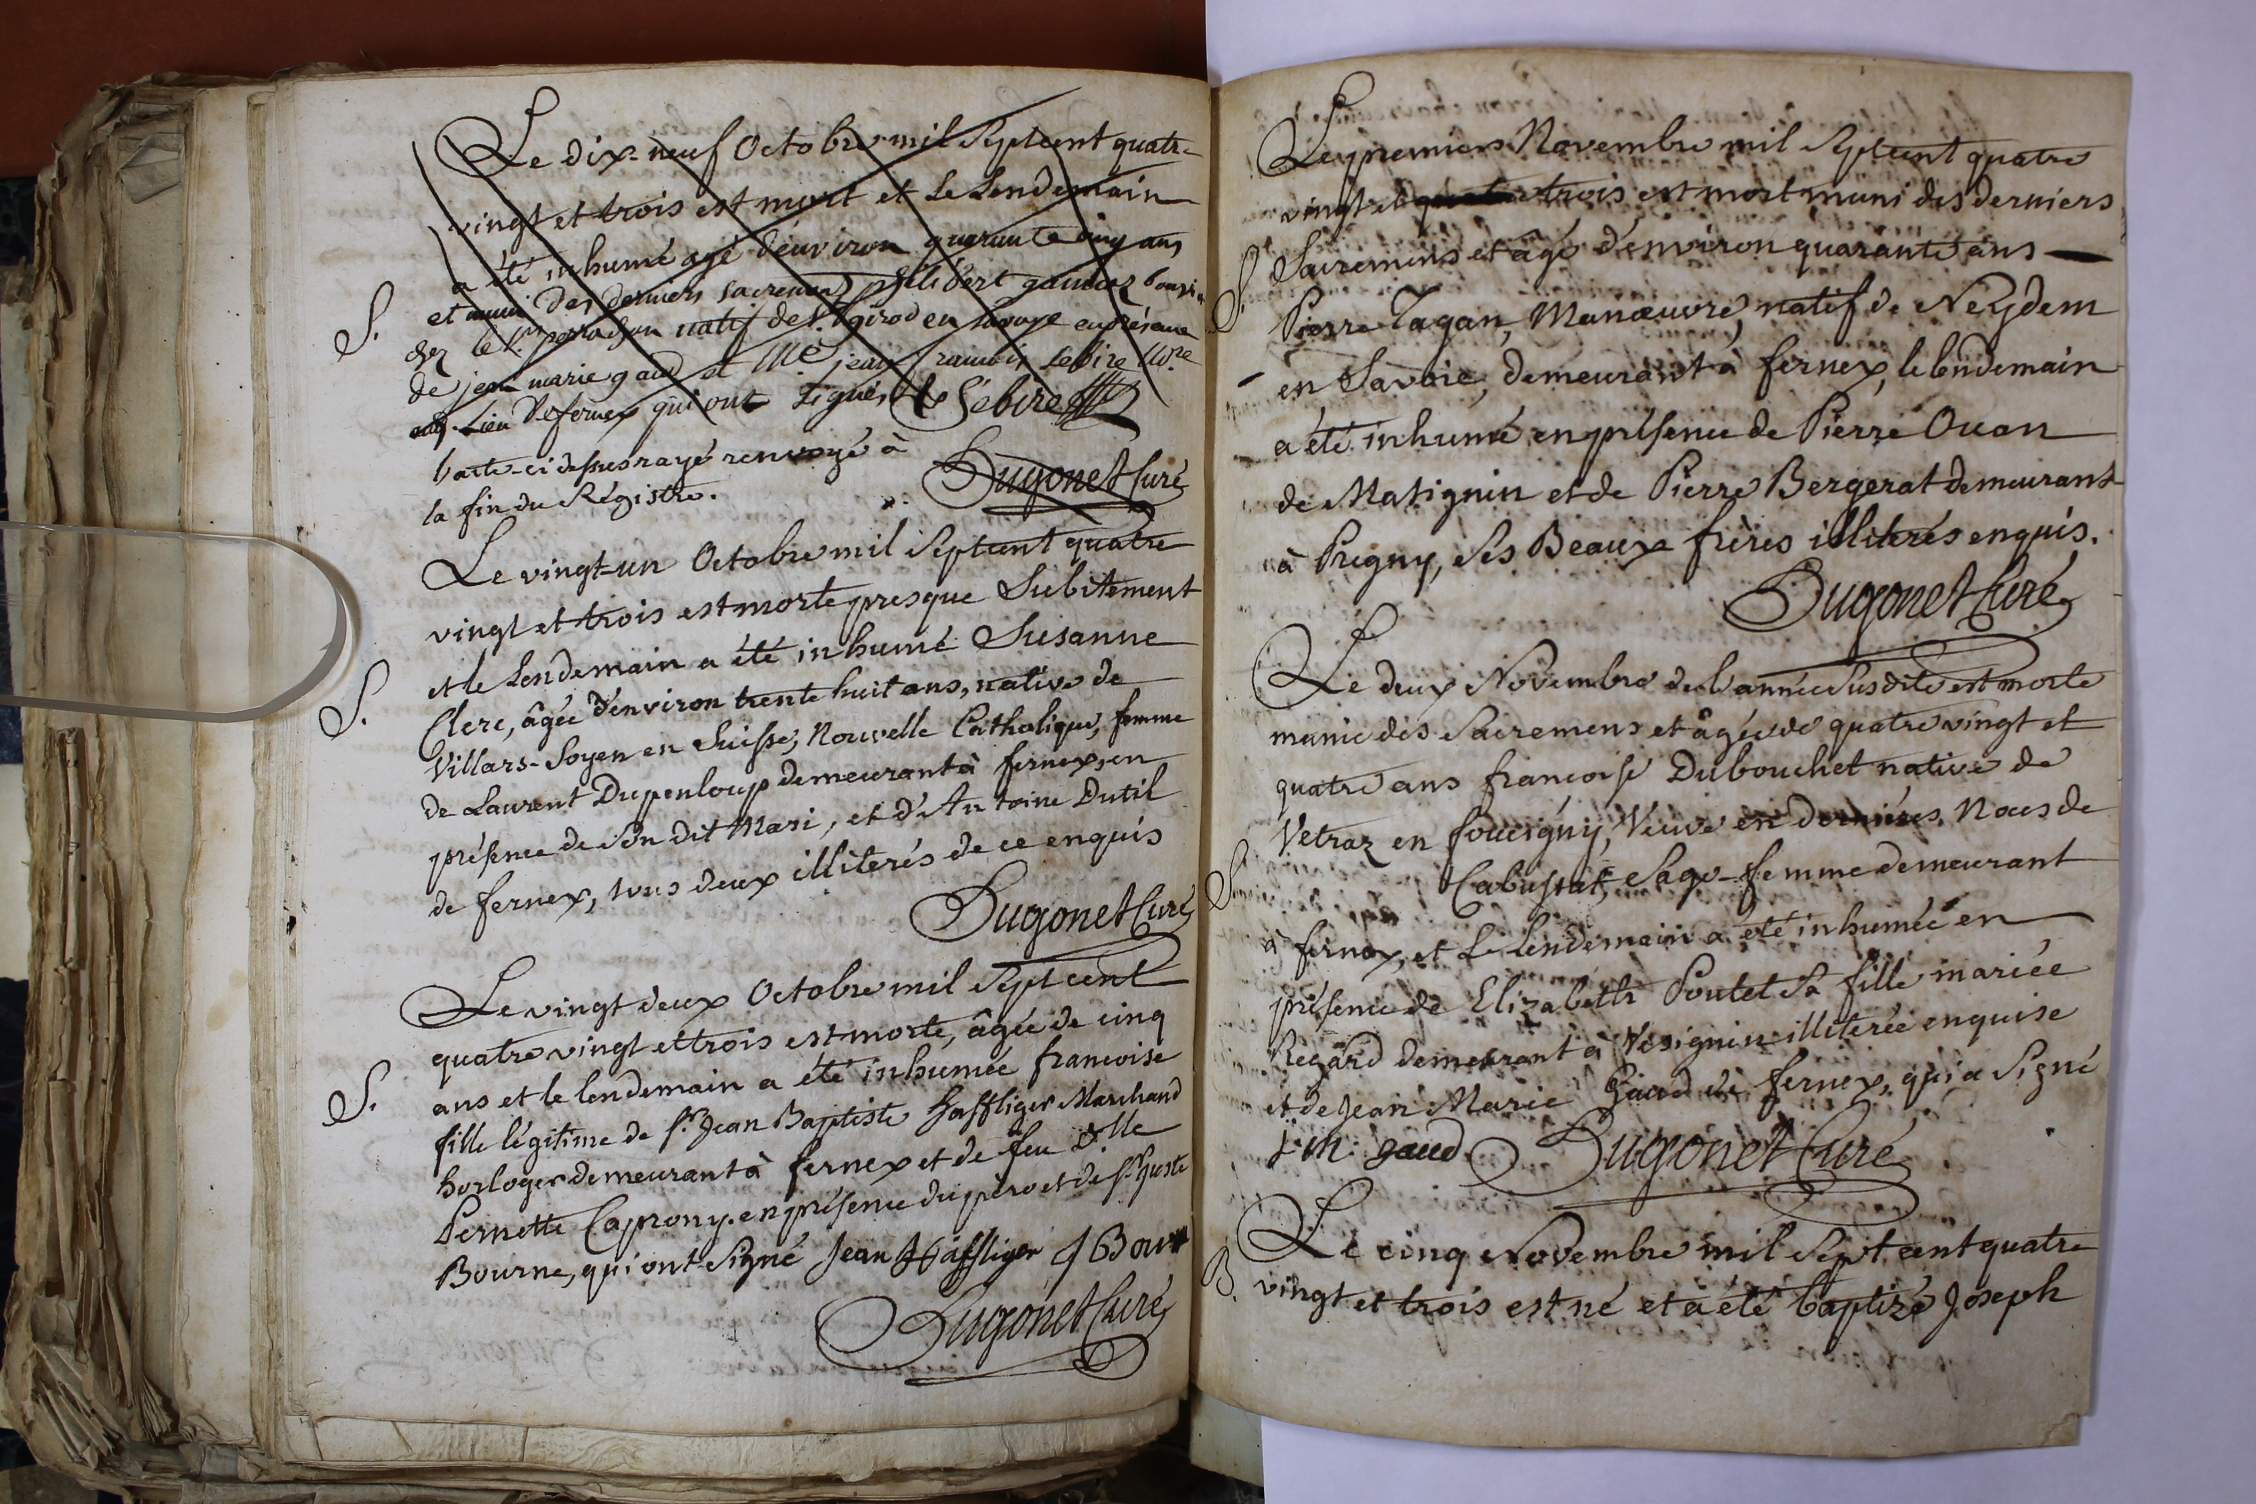 Le dix-neuf Octobre mil Septcent quatre
vingt et trois est mort et Le Lendemain
a été inhumé agé d'environ quarante cinq ans
S. et muni des derniers sacremens philibert
chez le Sr. natif de St. girod en Savoye en présence
de jean marie gaud et Me. jean francois Lebire
Lieu de fernex qui ont signés Lebire
Dugonet Curé
l'acte-ci dessus rayé renvoyé à
la fin du Régistre.
Le vingt-un Octobre mil Septcent quatre
vingt et trois est morte presque Subitement
et le Lendemain a été inhumé Susanne
S. Clerc, âgée d'environ trente huit ans, native de
Villars-Soyen en Suisse, Nouvelle Catholique, femme
de Laurent Dupenloup demeurant à fernex, en
présence de Son dit Mari, et d'Antoine Dutil
de fernex, tous deux illiterés de ce enquis
Dugonet Curé
Le vingt deux Octobre mil Septcent
quatre vingt et trois est morte, âgée de cinq
S. ans et le lendemain a été inhumée francoise
fille légitime de Sr. Jean Baptiste Haffliger Marchand
horloger demeurant à fernex et de feu D.lle
Pernette Caprony. en présence du père et de Sr. Juste
Bourne, qui ont Signé Jean Häffliger
Dugonet Curé
Le premier Novembre mil Septcent quatre
vingt et trois est mort muni des derniers
S. Sacremens et âgé d'environ quarante ans
Pierre Tagan, Manœuvre, natif de Neydem
en Savoie, demeurant à fernex, le lendemain
a été inhumé en présence de Pierre Ouan
de Matignin et de Pierre Bergerat demeurant
à Pregny, Ses Beaux frères illiterés enquis.
Dugonet Curé
Le deux Novembre de l'année Susdite est morte
munie des Sacremens et âgée de quatre vingt et
quatre ans françoise Dubouchet native de
Vetraz en foucigny, Veuve en dernières Noces de
S. Cabustat, Sage-femme demeurant
à fernex, et Le lendemain a été inhumée en
présence de Elizabeth Poutet Sa fille mariée
Regard demeurant à Vesignin illiterée enquise
et de Jean Marie Gaud de fernex, qui a Signé
j m gaud Dugonet Curé
Le cinq Novembre mil Sept cent quatre
B. vingt et trois est né et a été baptizé Joseph